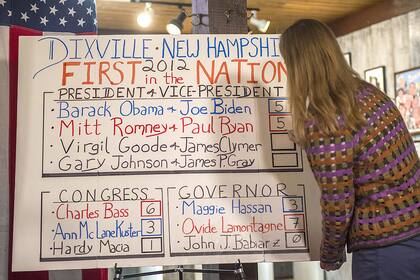 DIXVILLE · NEW HAMPSHI
FIRST 2012 in the NATION
PRESIDENT & VICE-PRESIDENT
• Barack Obama & Joe Biden 5
• Mitt Romney & Paul Ryan 5
• Virgil Goode & James Clymer
• Gary Johnson & James P. Gray
CONGRESS
• Charles Bass 6
• Ann McLane Kuster 3
• Hardy Macia 1
GOVERNOR
• Maggie Hassan 3
• Ovide Lamontagne 7
• John J. Babiarz 0